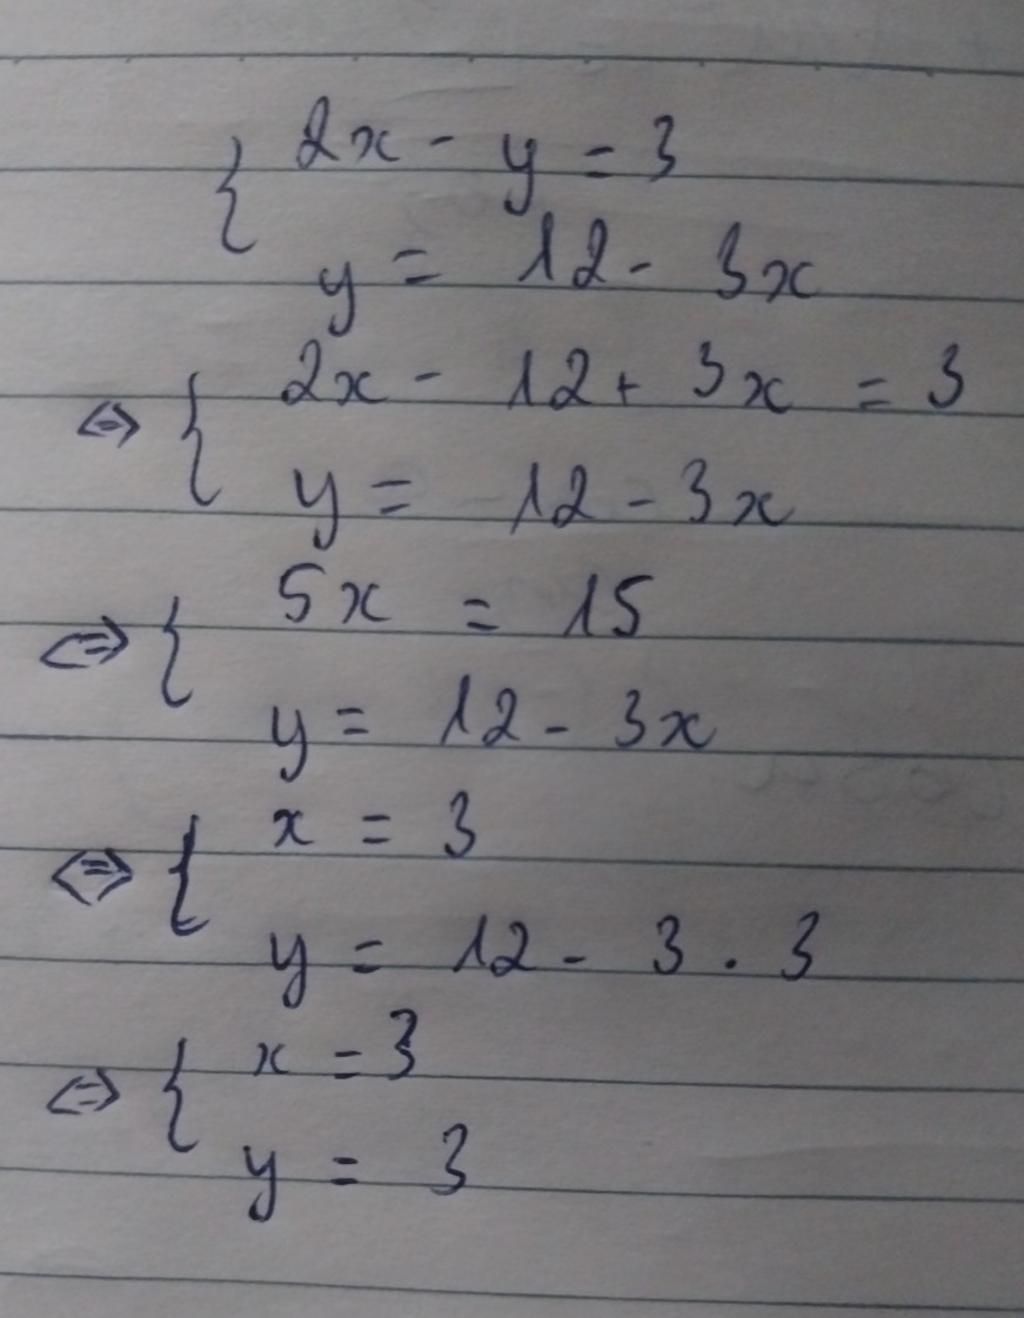 { 2x - y = 3
y = 12 - 3x
⇔ { 2x - 12 + 3x = 3
y = 12 - 3x
⇔ { 5x = 15
y = 12 - 3x
⇔ { x = 3
y = 12 - 3 . 3
⇔ { x = 3
y = 3